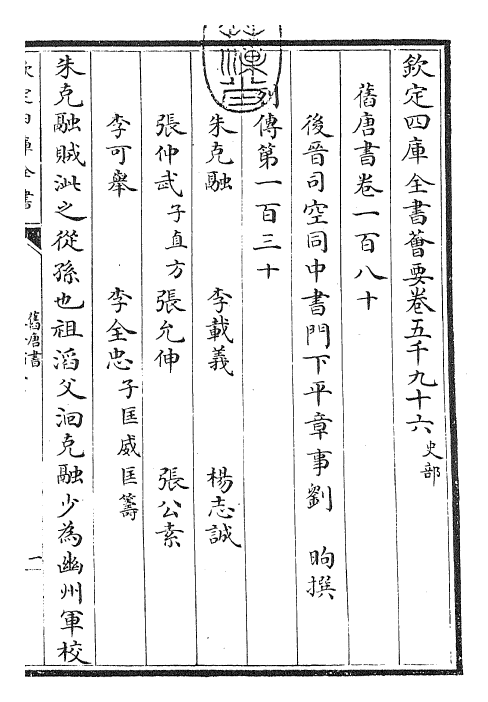 欽定四庫全書薈要卷五千九十六 史部
舊唐書卷一百八十
後晉司空同中書門下平章事劉 昫撰
列傳第一百三十
朱克融 李載義 楊志誠
張仲武 子直方 張允伸 張公素
李可舉 李全忠 子匡威 匡籌
朱克融賊泚之從孫也祖滔父洄克融少為幽州軍校
欽定四庫全書
舊唐書
一